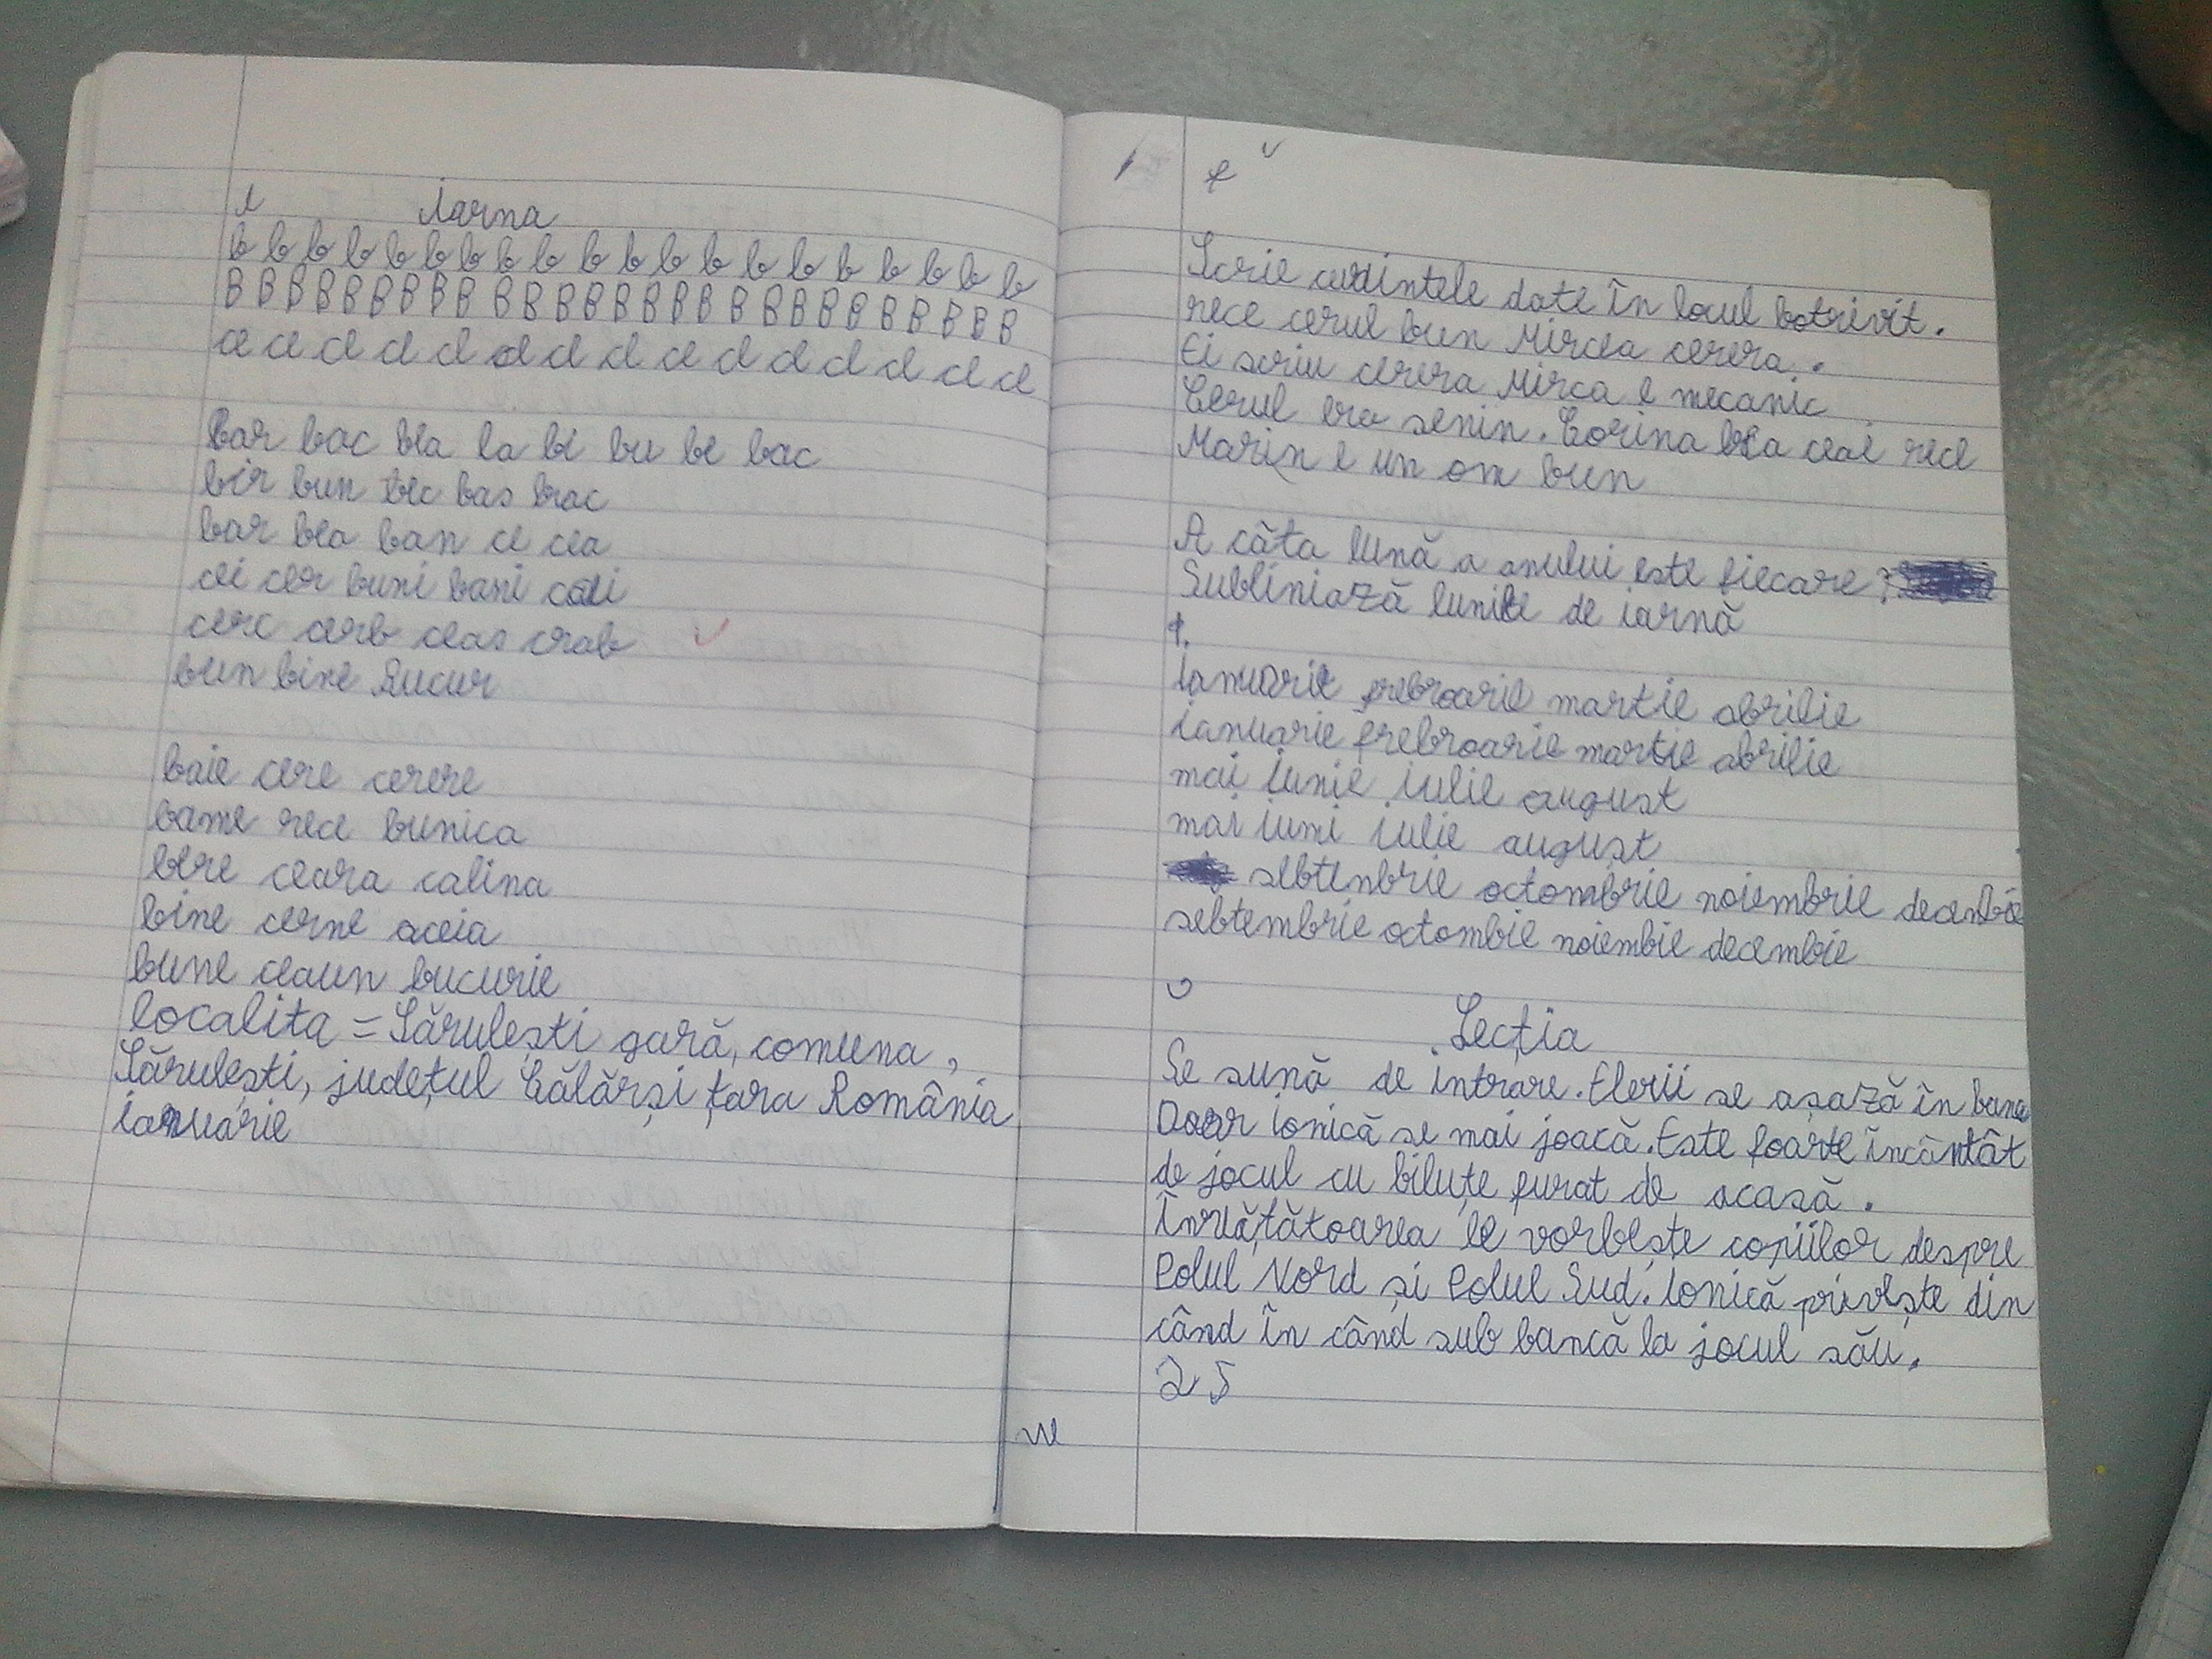 Iarna
b b b b b b b b b b b b b b b b b b b b
B B B B B B B B B B B B B B B B B B B B B B B B B B
ce ce ce ce ce ce ce ce ce ce ce ce ce ce ce
Bar bac bea ba bi bu be bac
bir bun bec bas brac
bar bea ban ce cea
cei cer buni bani
cerc cerb ceas crab
bun bine Bucur
baie cere cerere
bame rece bunica
bere ceara calina
bine cerne aceia
bune ceaun bucurie
localita = Sărulești gară, comuna,
Sărulești, județul Călărși țara România
ianuarie
Scrie cuvintele date în locul botrivit.
rece cerul bun Mircea cerera.
Ei scriu cerera Mirca e mecanic
Cerul era senin. Corina bea ceai rece
Marin e un om bun
A câta lună a anului este fiecare?
Subliniază lunile de iarnă
Ianuarie frebroarie martie abrilie
ianuarie frebroarie martie abrilie
mai iunie iulie august
mai iumi iulie august
sebtenbrie octombrie noiembrie decenbie
sebtembrie octombie noiembie decembie
Lecția
Se sună de intrare. Elevii se așază în banc
Doar ionică se mai joacă. Este foarte încântât
de jocul cu biluțe furat de acasă.
Învățătoarea le vorbește copiilor despre
Polul Nord și Polul Sud. Ionică privește din
când în când sub bancă la jocul său.
25